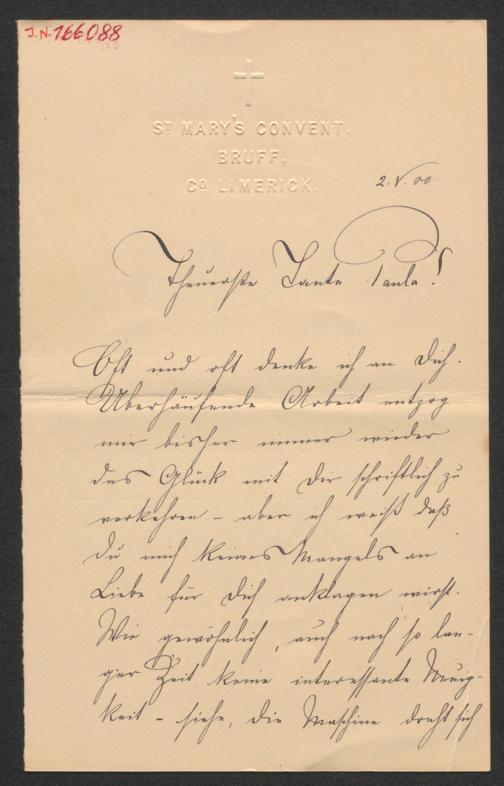 J.N. 166088
ST MARY'S CONVENT,
BRUFF,
CO LIMERICK.
2.V.00
Theuerste Tante Paula!
Oft und oft denke ich an Dich.
Überhäufende Arbeit entzog
mir bisher immer wieder
das Glück mit Dir schriftlich zu
verkehren – aber ich weiß daß
Du mich keines Mangels an
Liebe für Dich anklagen wirst.
Wie gewöhnlich, auch nach so lan-
ger Zeit keine interessante Neuig-
keit – siehe, die Maschine dreht sich